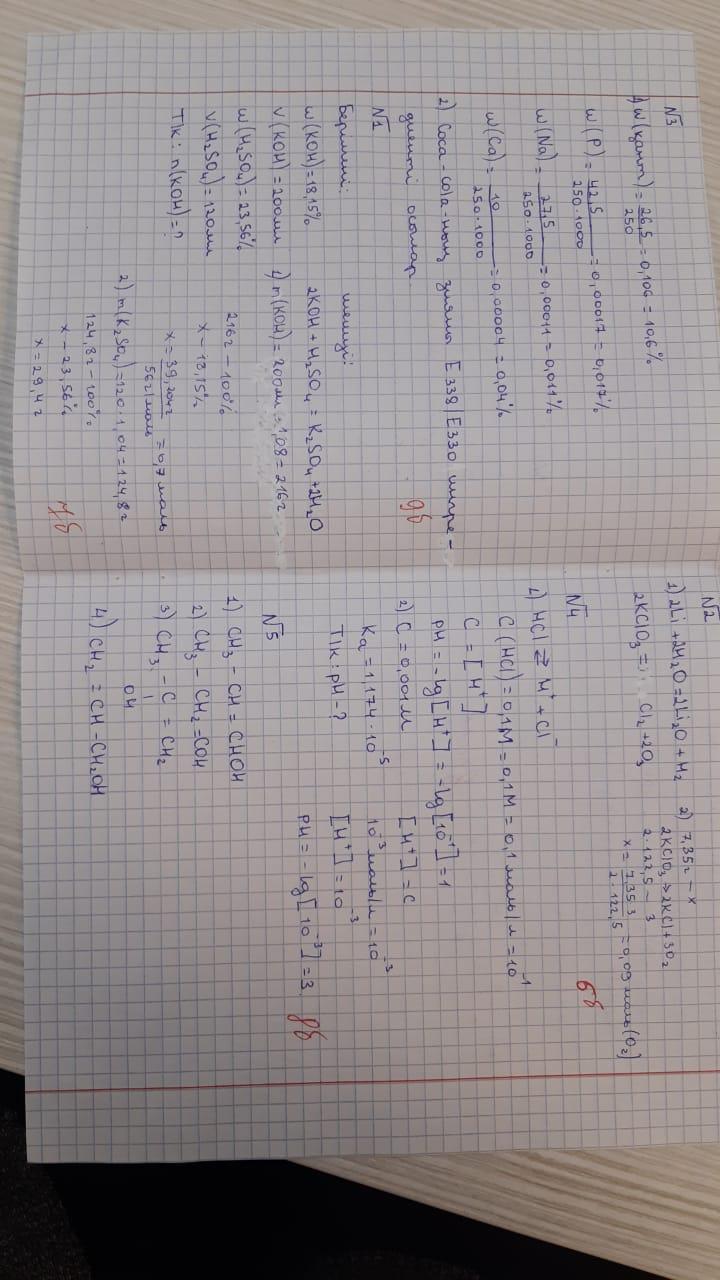 №3
1) w(қант) = 26,5/250 = 0,106 = 10,6%
w(P) = 42,5/250·1000 = 0,00017 = 0,017%
w(Na) = 27,5/250·1000 = 0,00011 = 0,011%
w(Ca) = 10/250·1000 = 0,00004 = 0,04%
2) Coca-cola-ның зияны E338/E330 ингре-
диенті осылар.
9б
№1
Берілгені:
w(KOH) = 18,15%
V(KOH) = 200мл
w(H₂SO₄) = 23,56%
V(H₂SO₄) = 120мл
Т/к: n(KOH) = ?
шешуі:
2KOH + H₂SO₄ = K₂SO₄ + 2H₂O
1) m(KOH) = 200мл · 1,08 = 216г
216г – 100%
x – 18,15%
x = 39,204г/56г/моль = 0,7 моль
2) m(K₂SO₄) = 120·1,04 = 124,8г
124,8г – 100%
x – 23,56%
x = 29,4г
7б
№2
1) 2Li + 2H₂O = 2Li₂O + H₂
2KClO₃ = Cl₂ + 2O₃
2) 7,35г – x
2KClO₃ → 2KCl + 3O₂
2·122,5 – 3
x = 7,35 3/2·122,5 = 0,09 моль (O₂)
6б
№4
1) HCl ⇄ H⁺ + Cl⁻
C(HCl) = 0,1M = 0,1M = 0,1 моль/л = 10⁻¹
C = [H⁺]
pH = -lg[H⁺] = -lg[10⁻¹] = 1
2) C = 0,001M
Ka = 1,174·10⁻⁵
Т/к: pH - ?
[H⁺] = C
10⁻³ моль/л = 10⁻³
[H⁺] = 10⁻³
pH = -lg[10⁻³] = 3
8б
№5
1) CH₃ – CH = CHOH
2) CH₃ – CH₂ = COH
3) CH₃ – C = CH₂
OH
4) CH₂ = CH – CH₂OH